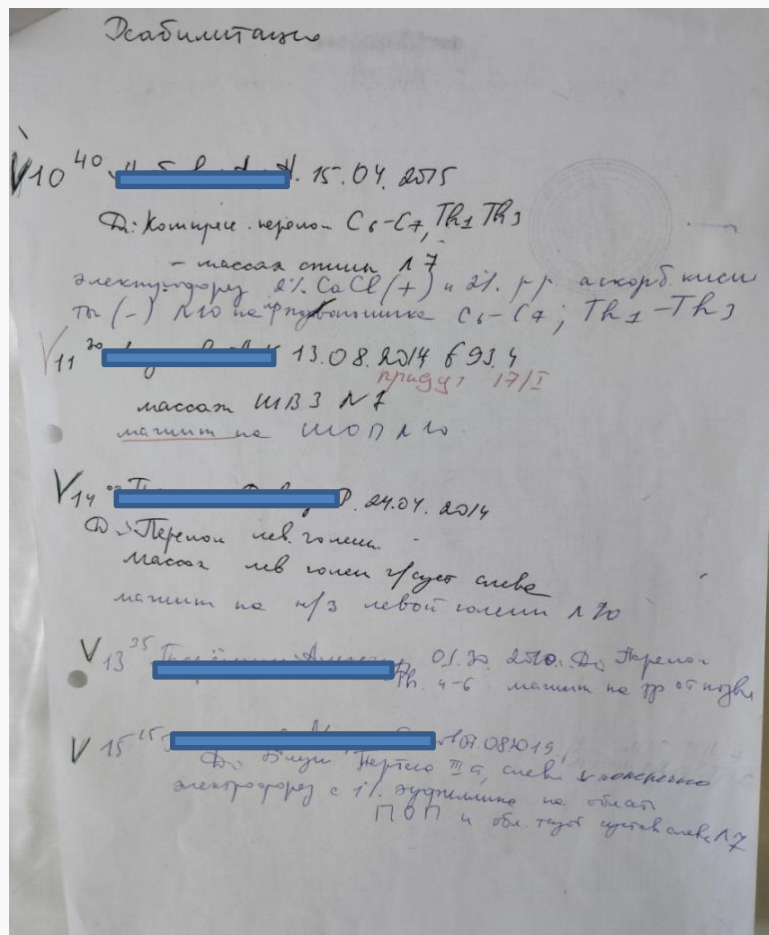 Реабилитация
V 10 40 15.04.2015
D: Компрес. перелом C6-C7, Th1 Th3
- массаж спины №7
электрофорез 2% CaCl (+) и 2% р-р аскорб. кисло
ты (-) №10 на позвоночника C6-C7; Th1-Th3
V 11 13.08.2014 693.4
придут 17/I
массаж ШВЗ №7
магнит на ШОП №10
V 14 24.04.2014
D: Перелом лев. голени
массаж лев голен г/суст слева
магнит на н/з левой голени №10
V 13 35 2010. D: Перелом
Th. 4-6 магнит на гр от позв
V 15 15
D: Пертеса III ст, слева
электрофорез с 1% эуфиллина на област
ПОП и обл. тазоб сустава слева №7